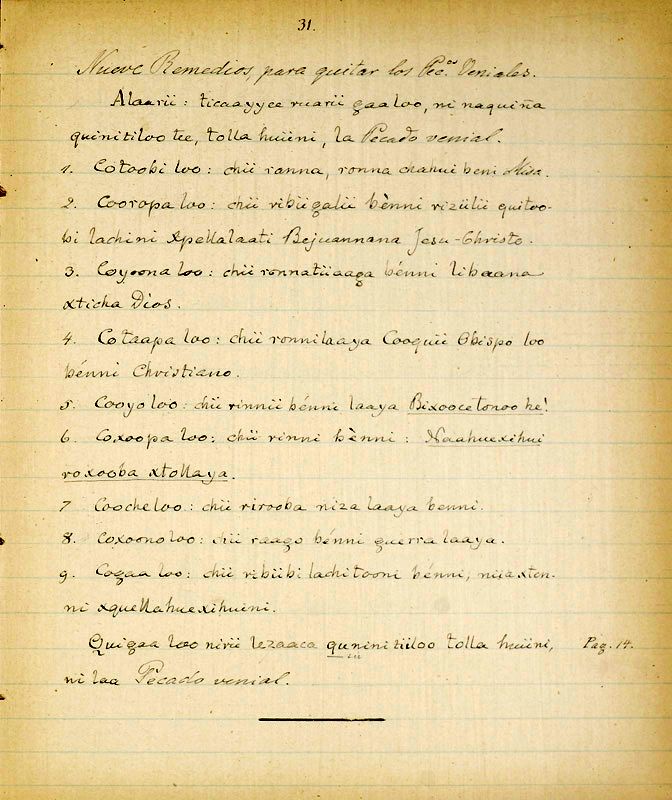 31.
Nueve Remedios, para quitar los Pec.os Veniales.
Alaarii: ticaayyee ruarii gaaloo, ni naquiña
quinitiloo tee, tolla huiini, la Pecado venial.
1. Cotoobi loo: chii ranna, ronna chahui beni Misa.
2. Cooropa loo: chii ribiigalii bènni riziilii quitoo-
bi lachini xpellalaati Bejuannana Jesu-Christo.
3. Coyoona loo: chii ronnatiiaaga bénni libaana
xticha Dios.
4. Cotaapa loo: chii ronnilaaya Cooquii Obispo loo
bénni Christiano.
5. Cooyo loo: chii rinnii bénni laaya Bixoocetonoo he!
6. Coxoopa loo: chii rinni bènni: Naahuexihui
roxooba xtollaya.
7 Coocheloo: chii rirooba niza laaya benni.
8. Coxoonoloo: chii raago bénni guerra laaya.
9. Cogaa loo: chii ribiibi lachitooni bénni, niiaxten-
ni xquellahuexihuini.
Quigaa loo nirii lezaaca quninitiiloo tolla huiini, Pag. 14.
ni laa Pecado venial.